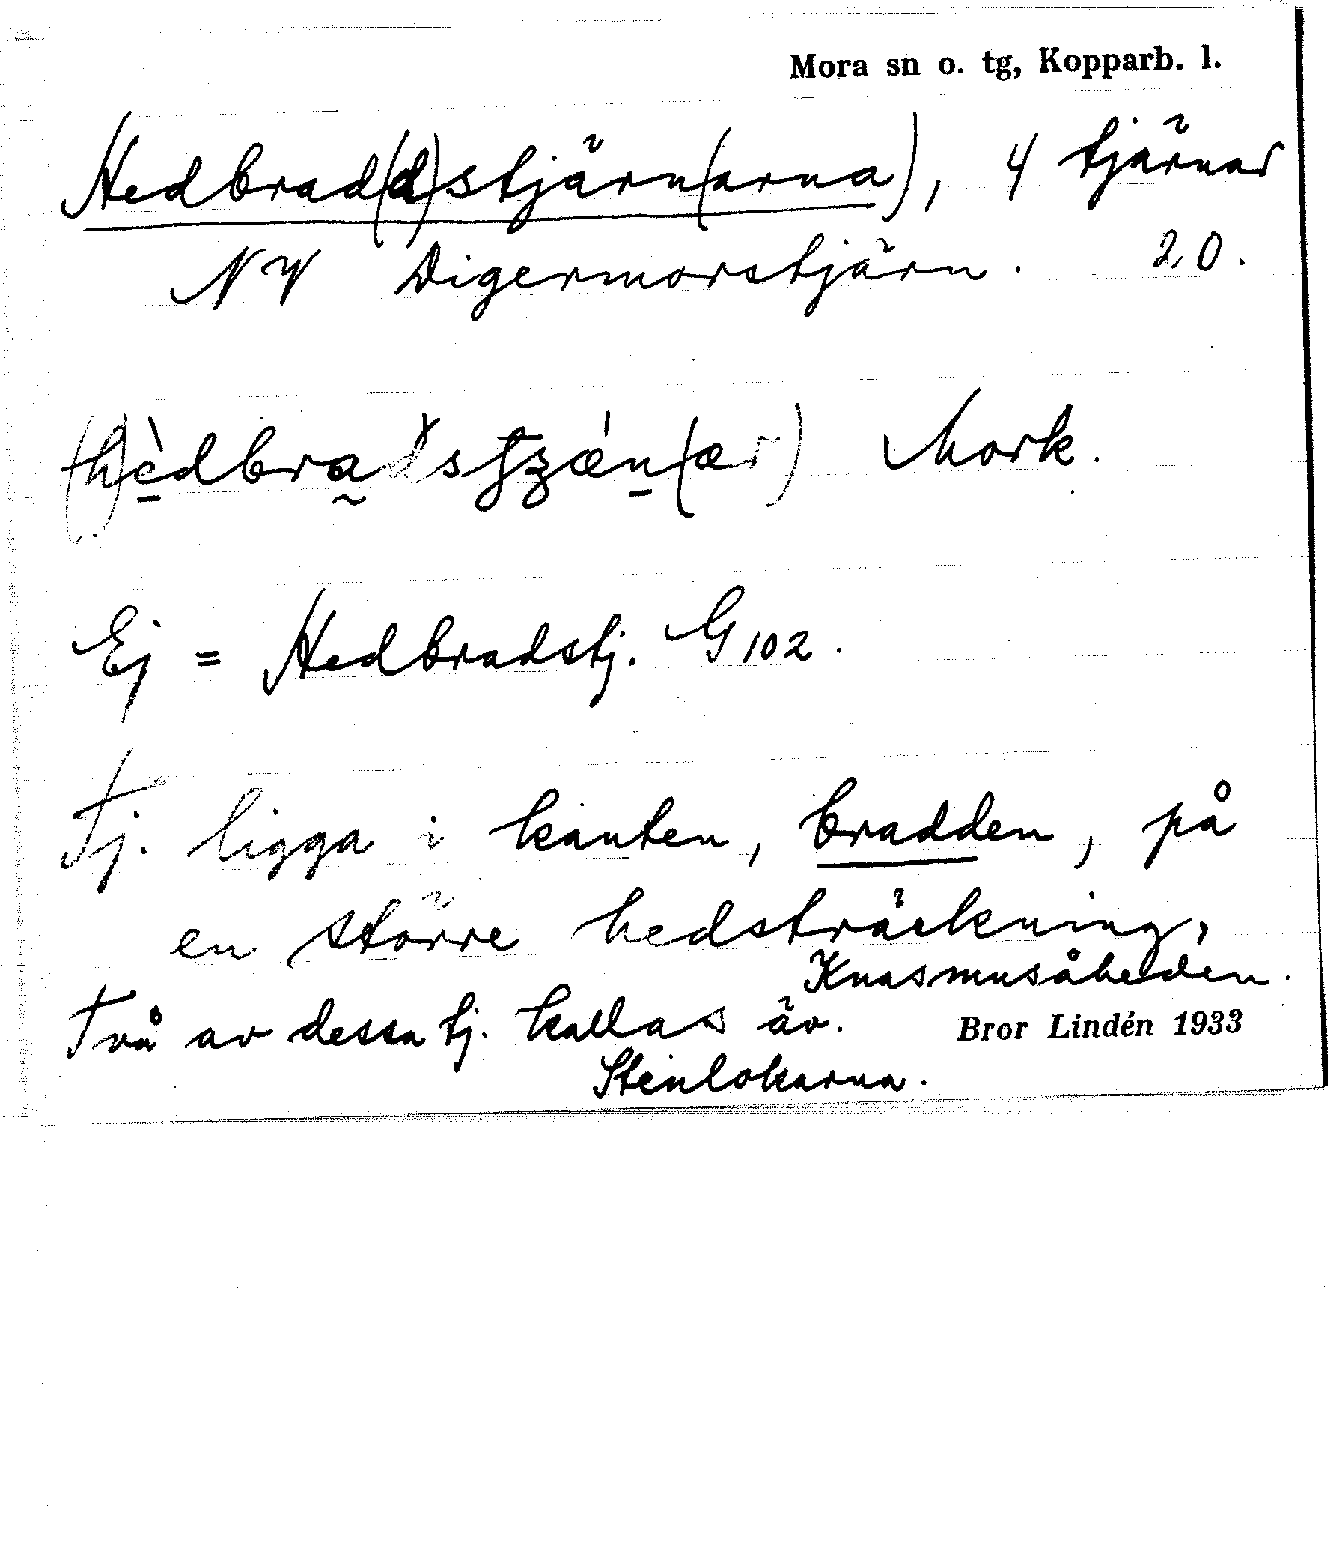 Mora sn o. tg, Kopparb. l.
Hedbrad(d)stjärn(arna), 4 tjärnar
NV Digermorstjärn. 20.
Mork.
Ej = Hedbradstj. G 102.
Tj. ligga i kanten, bradden, på
en större hedsträckning,
Knasmusåheden.
Två av dessa tj. kallas äv.
Bror Lindén 1933
Stenlokarna.